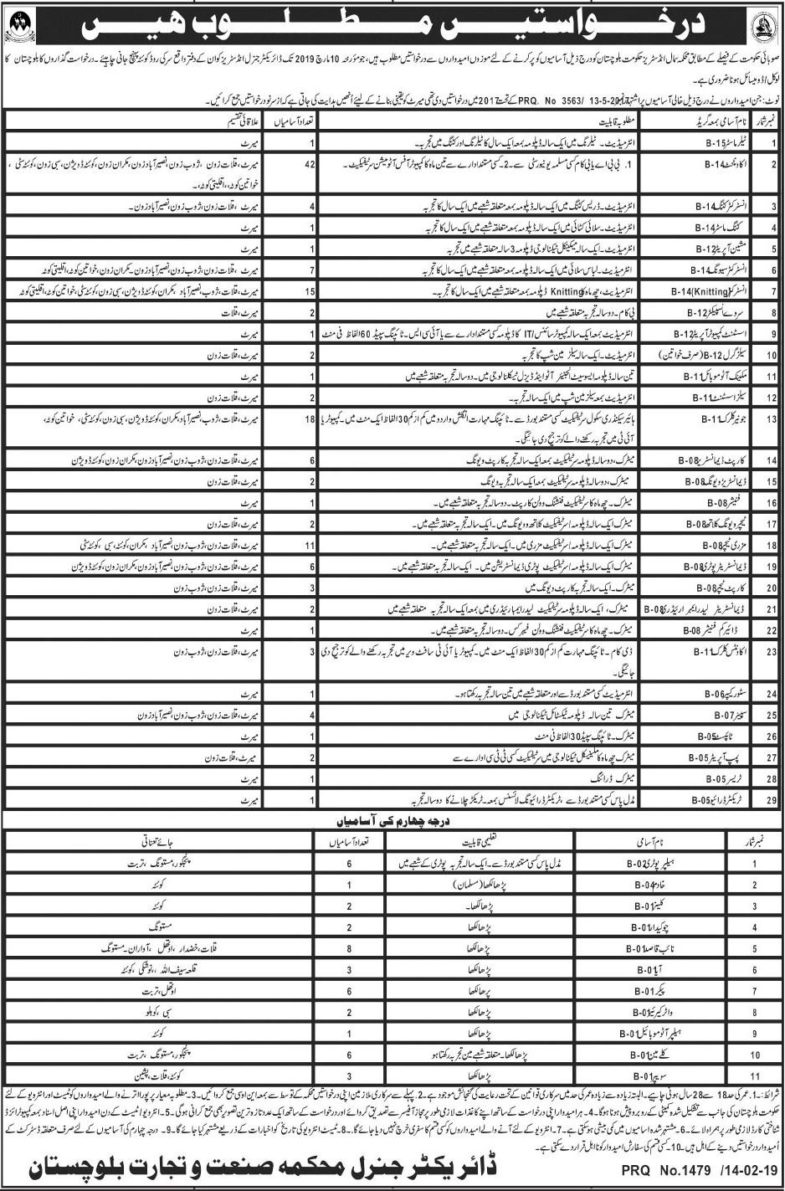 درخواستیں مطلوب ہیں
صوبائی حکومت کے فیصلے کے مطابق محکمہ سمال انڈسٹریز حکومت بلوچستان کو درج ذیل آسامیوں کو پُر کرنے کے لئے موزوں امیدواروں سے درخواستیں مطلوب ہیں، جو مورخہ 10 مارچ 2019 تک ڈائریکٹر جنرل انڈسٹریز کو ان کے دفتر واقع سرکی روڈ کوئٹہ پہنچ جانی چاہیئے۔ درخواست گذاروں کا بلوچستان کا
لوکل/ڈومیسائل ہونا ضروری ہے۔
نوٹ: جن امیدواروں نے درج ذیل خالی آسامیوں پر اشتہار PRQ. No 3563/ 13-5-20 کے تحت 2017 میں درخواستیں دی تھی میرٹ کو یقینی بنانے کے لیئے انھیں ہدایت کی جاتی ہے کہ از سر نو درخواستیں جمع کرائیں۔
نمبر شمار نام آسامی بمعہ گریڈ مطلوبہ قابلیت تعداد آسامیاں علاقائی تقسیم
1 ٹیلر ماسٹر B-15 انٹرمیڈیٹ۔ ٹیلرنگ میں ایک سالہ ڈپلومہ بمعہ ایک سال کا ٹیلرنگ اور کٹنگ میں تجربہ۔ 1 میرٹ
2 اکاونٹنٹ B-14 1. بی بی اے یا بی کام کسی مسلمہ یونیورسٹی سے۔ 2۔ کسی مستند ادارے سے تین ماہ کا کمپیوٹر آفس آٹومیشن سرٹیفکیٹ۔ 42 میرٹ، قلات زون، ژوب زون، نصیر آباد زون، مکران زون، کوئٹہ ڈویژن، سبی زون، کوئٹہ سٹی،
خواتین کوٹہ، اقلیتی کوٹہ۔
3 انسٹرکٹر کٹنگ B-14 انٹرمیڈیٹ۔ ڈریس کٹنگ میں ایک سالہ ڈپلومہ بمعہ متعلقہ شعبے میں ایک سال کا تجربہ 4 میرٹ، قلات زون، ژوب زون، نصیر آباد زون۔
4 کٹنگ ماسٹر B-14 انٹرمیڈیٹ۔ سلائی کٹائی میں ایک سالہ ڈپلومہ بمعہ متعلقہ شعبے میں ایک سال کا تجربہ 1 میرٹ
5 مشین آپریٹر B-12 انٹرمیڈیٹ۔ ایک سالہ میکینکل ٹیکنالوجی ڈپلومہ 3 سالہ متعلقہ شعبے میں تجربہ 1 میرٹ
6 انسٹرکٹر سیونگ B-14 انٹرمیڈیٹ۔ لباس سلائی میں ایک سالہ ڈپلومہ بمعہ متعلقہ شعبے میں ایک سال کا تجربہ 7 میرٹ، قلات زون، ژوب زون، نصیر آباد زون۔ مکران زون، خواتین کوٹہ، اقلیتی کوٹہ
7 انسٹرکٹر (Knitting) B-14 انٹرمیڈیٹ، چھ ماہ کا Knitting ڈپلومہ بمعہ متعلقہ شعبے میں ایک سال کا تجربہ۔ 15 میرٹ، قلات زون، ژوب، نصیر آباد، مکران زون، کوئٹہ ڈویژن، سبی زون، کوئٹہ سٹی، خواتین کوٹہ، اقلیتی کوٹہ
8 سروے انسپکٹر B-12 بی کام۔ دو سالہ تجربہ متعلقہ شعبے میں 2 میرٹ، قلات
9 اسسٹنٹ کمپیوٹر آپریٹر B-12 انٹرمیڈیٹ بمعہ ایک سالہ کمپیوٹر سائنس/IT کا ڈپلومہ کسی مستند ادارے سے یا آئی سی ایس۔ ٹائپنگ سپیڈ 60 الفاظ فی منٹ 1 میرٹ
10 سیلز گرل B-12 (صرف خواتین) انٹرمیڈیٹ۔ ایک سالہ سیلز مین شپ کا تجربہ 2 میرٹ، قلات زون
11 مکینک آٹو موبائل B-11 تین سالہ ڈپلومہ ایسوسی ایٹ انجینئر آٹو اینڈ ڈیزل ٹیکنالوجی میں۔ دو سالہ تجربہ متعلقہ شعبے میں۔ 1 میرٹ
12 سیلز اسسٹنٹ B-11 انٹرمیڈیٹ بمعہ سیلز مین شپ میں ایک سالہ تجربہ۔ 2 میرٹ، قلات زون
13 جونیئر کلرک B-11 ہائیر سیکنڈری سکول سرٹیفکیٹ کسی مستند بورڈ سے۔ ٹائپنگ مہارت انگلش و اردو میں کم از کم 30 الفاظ ایک منٹ میں۔ کمپیوٹر یا 18 میرٹ، قلات زون، ژوب زون، نصیر آباد، مکران، کوئٹہ ڈویژن، سبی زون، کوئٹہ سٹی، خواتین کوٹہ،
آئی ٹی میں تجربہ رکھنے والے کو ترجیح دی جائیگی۔
14 کارپٹ ڈیمانسٹریٹر B-08 میٹرک، دو سالہ ڈپلومہ سرٹیفکیٹ بمعہ ایک سالہ تجربہ کارپٹ ویونگ 6 میرٹ، قلات زون، ژوب زون، نصیر آباد زون، مکران زون، کوئٹہ ڈویژن
15 ڈیمانسٹریٹر ویونگ B-08 میٹرک، دو سالہ ڈپلومہ سرٹیفکیٹ بمعہ ایک سالہ تجربہ ویونگ 2 میرٹ، قلات زون
16 فنشر B-08 میٹرک۔ چھ ماہ کا سرٹیفکیٹ فنشنگ وولن کارپٹ۔ دو سالہ تجربہ متعلقہ شعبے میں۔ 1 میرٹ
17 ٹیچر ویونگ کلاتھ B-08 میٹرک ایک سالہ ڈپلومہ/سرٹیفکیٹ کلاتھ ویونگ میں۔ ایک سالہ تجربہ متعلقہ شعبے میں۔ 2 میرٹ، قلات زون
18 مزری ٹیچر B-08 میٹرک ایک سالہ ڈپلومہ/سرٹیفکیٹ مزری میں۔ ایک سالہ تجربہ متعلقہ شعبے میں۔ 11 میرٹ، قلات زون، ژوب زون، نصیر آباد، مکران زون، کوئٹہ، سبی، کوئٹہ سٹی
19 ڈیمانسٹریٹر پوٹری B-08 میٹرک ایک سالہ ڈپلومہ/سرٹیفکیٹ پوٹری ڈیمانسٹریشن میں۔ ایک سالہ تجربہ متعلقہ شعبے میں۔ 6 میرٹ، قلات زون، ژوب زون، نصیر آباد زون، مکران زون، کوئٹہ ڈویژن
20 کارپٹ ٹیچر B-08 میٹرک۔ ایک سالہ تجربہ کارپٹ ویونگ میں 3 میرٹ، قلات زون، مکران
21 ڈیمانسٹریٹر لیدر ایمبرائیڈری B-08 میٹرک، ایک سالہ ڈپلومہ سرٹیفکیٹ لیدر ایمبرائیڈری میں بمعہ ایک سالہ تجربہ متعلقہ شعبے میں 2 میرٹ، قلات زون
22 ڈائیر کم فنیشر B-08 میٹرک۔ چھ ماہ کا سرٹیفکیٹ فنشنگ وولن فیبرکس۔ دو سالہ تجربہ متعلقہ شعبے میں۔ 1 میرٹ
23 اکاونٹس کلرک B-11 ڈی کام۔ ٹائپنگ مہارت کم از کم 30 الفاظ ایک منٹ میں۔ کمپیوٹر یا آئی ٹی سافٹ ویئر میں تجربہ رکھنے والے کو ترجیح دی 3 میرٹ، قلات زون، ژوب زون
جائیگی۔
24 سٹور کیپر B-06 انٹرمیڈیٹ کسی مستند بورڈ سے اور متعلقہ شعبے میں تین سالہ تجربہ رکھتا ہو۔ 1 میرٹ
25 سپنر B-07 میٹرک تین سالہ ڈپلومہ ٹیکسٹائل ٹیکنالوجی میں 4 میرٹ، قلات زون، ژوب زون، نصیر آباد زون
26 ٹائپسٹ B-05 میٹرک۔ ٹائپنگ سپیڈ 30 الفاظ فی منٹ 1 میرٹ
27 پمپ آپریٹر B-05 میٹرک چھ ماہ کا مکینیکل ٹیکنالوجی میں سرٹیفکیٹ کسی ٹی ٹی سی ادارے سے 2 میرٹ، قلات زون
28 ٹریسر B-05 میٹرک ڈرائنگ 1 میرٹ
29 ٹریکٹر ڈرائیور B-05 مڈل پاس کسی مستند بورڈ سے، ٹریکٹر ڈرائیونگ لائسنس بمعہ۔ ٹریکٹر چلانے کا دو سالہ تجربہ 1 میرٹ
درجہ چہارم کی آسامیاں
نمبر شمار نام آسامی تعلیمی قابلیت تعداد آسامیاں جائے تعیناتی
1 ہیلپر پوٹری B-02 مڈل پاس کسی مستند بورڈ سے۔ ایک سالہ تجربہ پوٹری کے شعبے میں 6 پنجگور، مستونگ، تربت
2 خادم B-04 پڑھا لکھا (مسلمان) 1 کوئٹہ
3 کلینر B-01 پڑھا لکھا۔ 2 کوئٹہ
4 چوکیدار B-01 پڑھا لکھا 2 مستونگ
5 نائب قاصد B-01 پڑھا لکھا 8 قلات، خضدار، اوتھل، آواران۔ مستونگ
6 آیا B-01 پڑھا لکھا 3 قلعہ سیف اللہ، نوشکی، کوئٹہ
7 پیکر B-01 پڑھا لکھا 6 اوتھل، تربت
8 واٹر کیریئر B-01 پڑھا لکھا 2 سبی، کوہلو
9 ہیلپر آٹو موبائیل B-01 پڑھا لکھا 1 کوئٹہ
10 کلے مین B-01 پڑھا لکھا۔ متعلقہ شعبے میں تجربہ رکھتا ہو 6 پنجگور، مستونگ، تربت
11 سویپر B-01 پڑھا لکھا 3 کوئٹہ، قلات، پشین
شرائط: 1۔ عمر کی حد 18 سے 28 سال ہونی چاہیے۔ البتہ زیادہ سے زیادہ عمر کی حد میں سرکاری قوانین کے تحت رعایت کی گنجائش موجود ہے۔ 2۔ پہلے سے سرکاری ملازمین اپنی درخواستیں محکمہ کے توسط سے بمعہ این او سی جمع کروائیں۔ 3۔ مطلوبہ معیار پر پورا اترنے والے امیدواروں کو ٹیسٹ اور انٹرویو کے لئے
حکومت بلوچستان کی جانب سے تشکیل شدہ کمیٹی کے روبرو پیش ہونا ہوگا۔ 4۔ ہر امیدوار اپنی درخواست کے ساتھ اپنے کاغذات لازمی طور پر مجاز آفیسر سے تصدیق کروائے اور درخواست کے ساتھ ایک عدد تازہ ترین تصویر بھی جمع کرانی ہوگی۔ 5۔ انٹرویو ٹیسٹ کے دن امیدوار اپنی اصل اسناد بمعہ کمپیوٹرائزڈ
شناختی کارڈ لازمی طور پر ہمراہ لائے۔ 6۔ مشتہر شدہ اسامیوں میں کمی بیشی ہو سکتی ہے۔ 7۔ انٹرویو کے لئے آنے والے امیدواروں کو کسی قسم کا سفری خرچ نہیں دیا جائے گا۔ 8۔ ٹیسٹ انٹرویو کی تاریخ کا اخبارات کے ذریعے مشتہر کیا جائے گا۔ 9۔ درجہ چہارم کی آسامیوں کے لئے صرف متعلقہ ڈسٹرکٹ کے
امیدوار درخواستیں دینے کے اہل ہیں۔ 10۔ کسی قسم کی سفارش امیدوار کو نا اہل قرار دے سکتی ہے۔
ڈائریکٹر جنرل محکمہ صنعت و تجارت بلوچستان
PRQ No.1479 /14-02-19